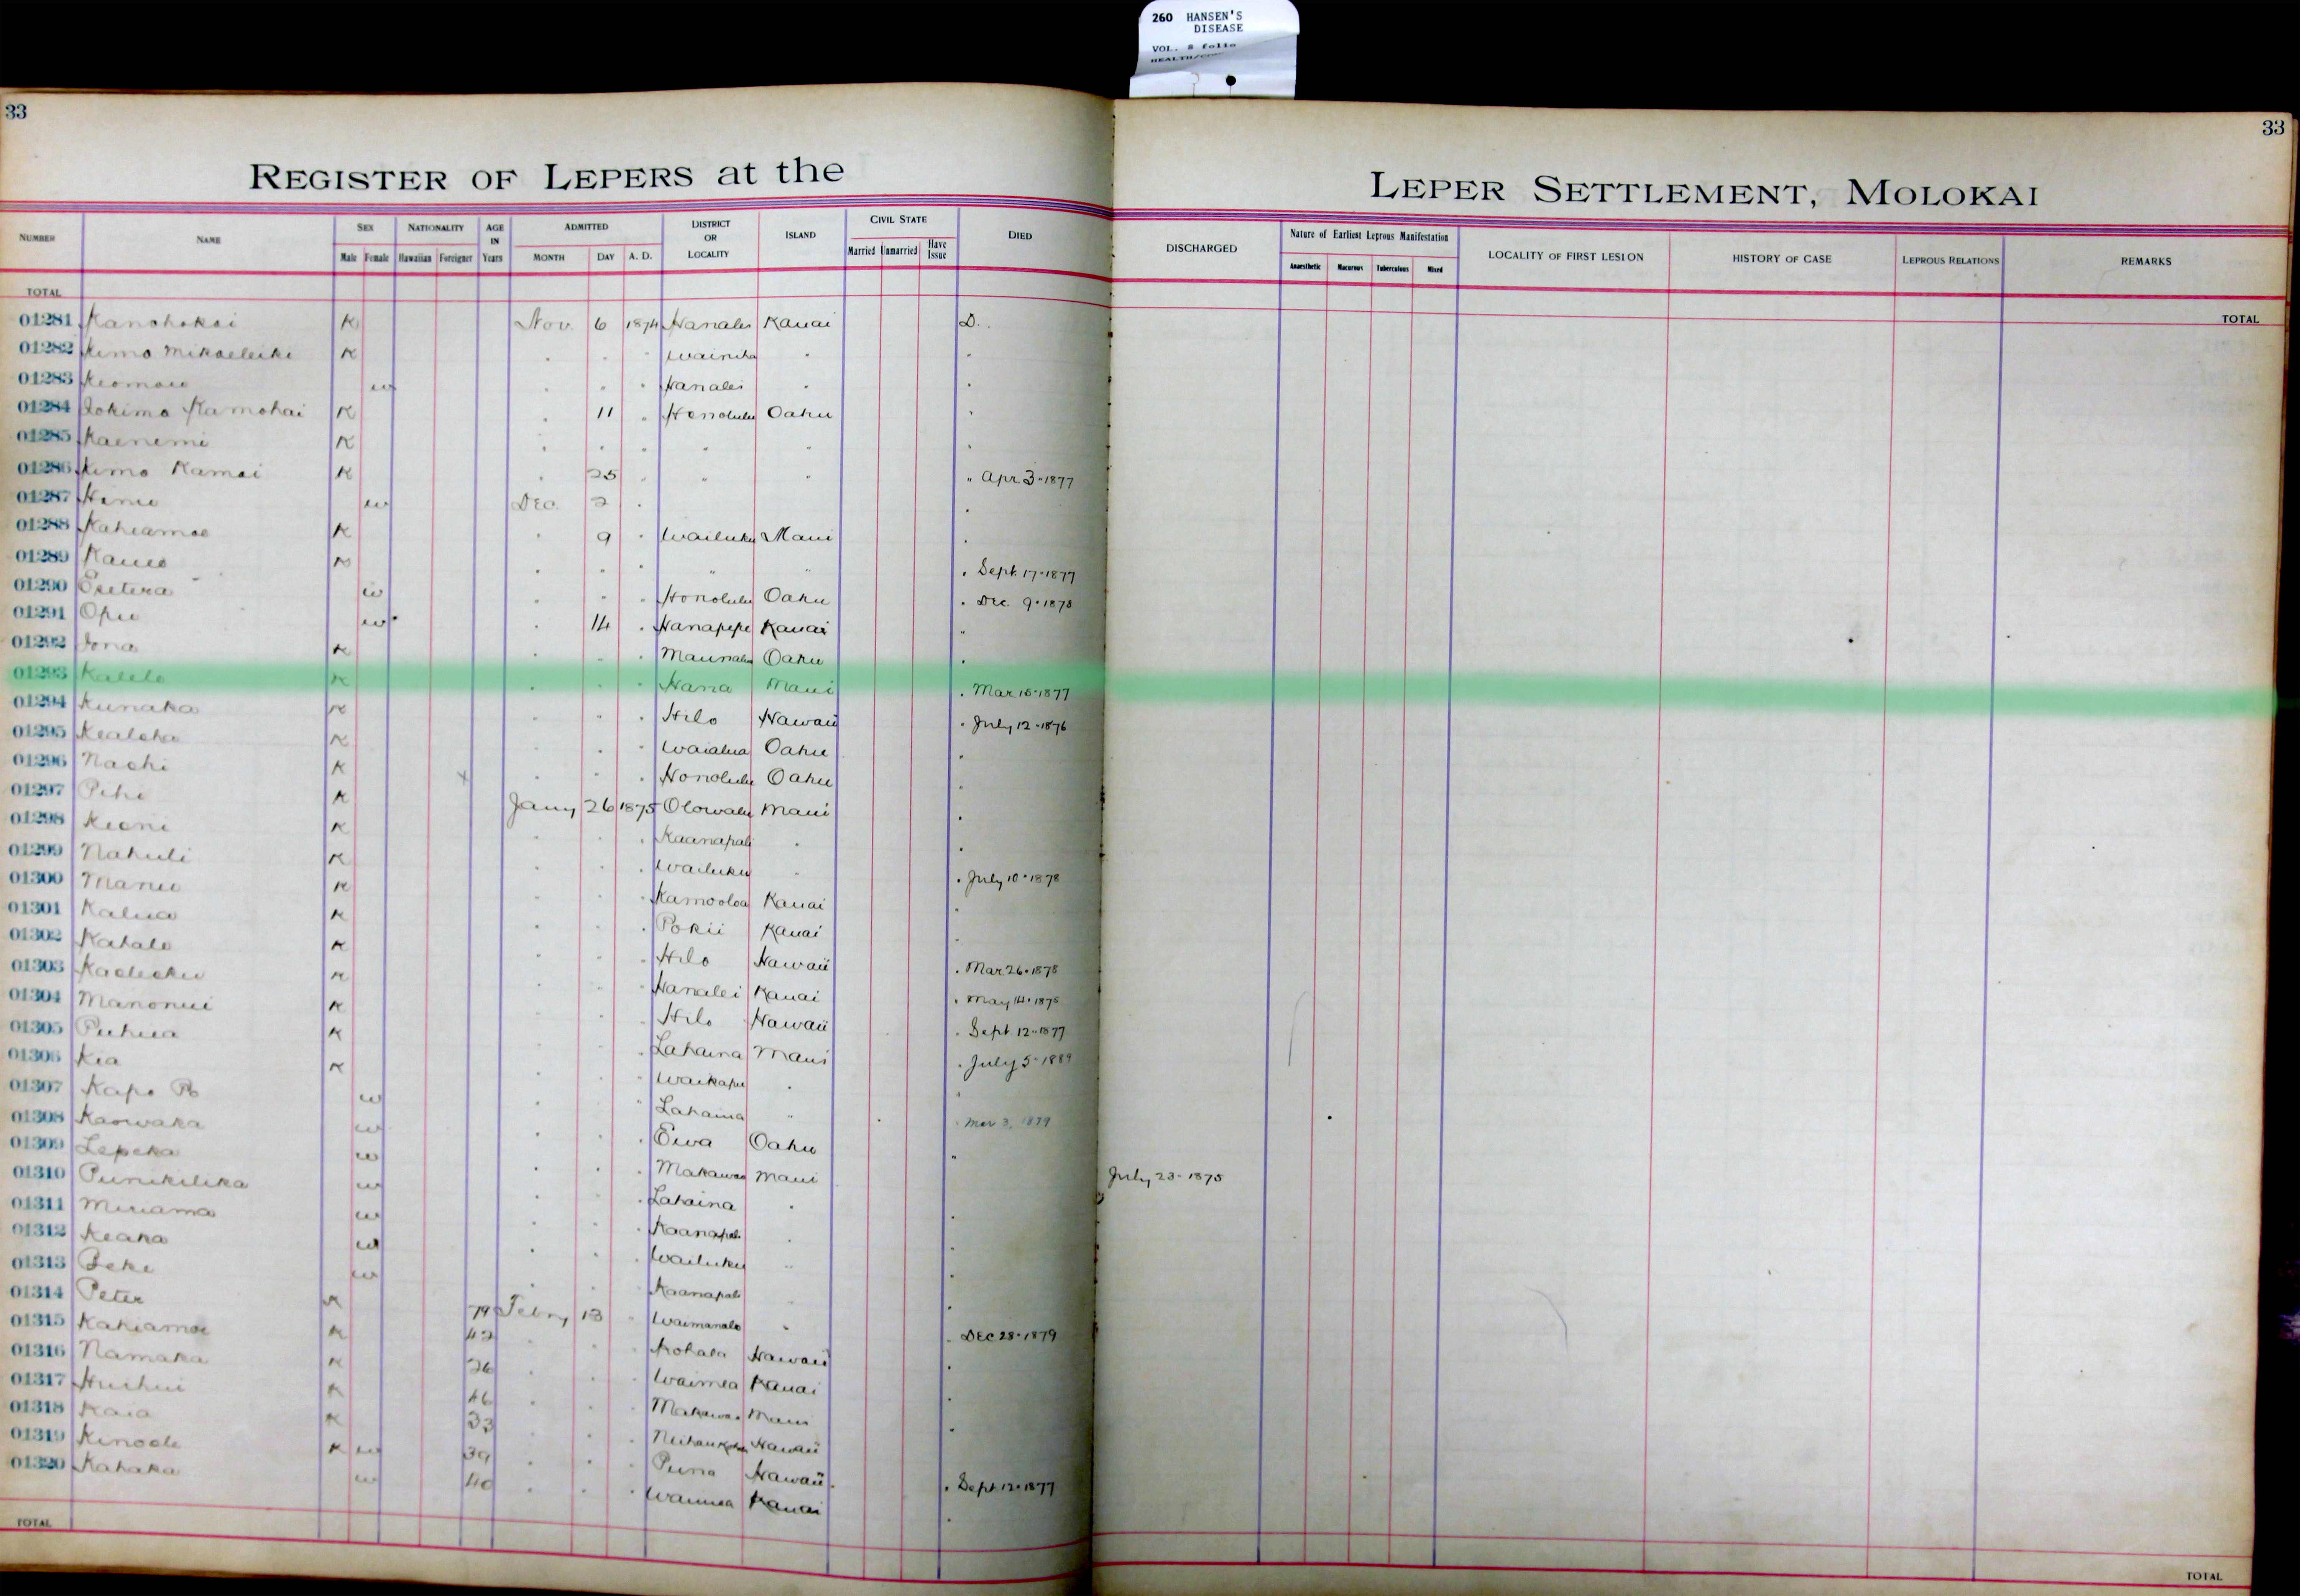 260 HANSEN'S
DISEASE
VOL. 8 folio
33
33
REGISTER OF LEPERS at the LEPER SETTLEMENT, MOLOKAI
NUMBER NAME SEX NATIONALITY AGE IN Years ADMITTED DISTRICT OR LOCALITY ISLAND CIVIL STATE DIED DISCHARGED Nature of Earliest Leprous Manifestation LOCALITY OF FIRST LESION HISTORY OF CASE LEPROUS RELATIONS REMARKS
Male Female Hawaiian Foreigner MONTH DAY A. D. Married Unmarried Have Issue Anaesthetic Macurous Tuberculous Mixed
TOTAL TOTAL
01281 Kanohokai K Nov. 6 1874 Hanalei Kauai D.
01282 Kimo Mikaeleiki K " " " Wainiha " "
01283 Keomoio w " " " Hanalei " "
01284 Iokimo Kamohai K " 11 " Honolulu Oahu "
01285 Kaenemi K " " " " " "
01286 Kimo Kamai K " 25 " " " " Apr 3-1877
01287 w Dec. 2 " "
01288 Kahiamoe K " 9 " Wailuku Maui "
01289 Kaueo K " " " " " " Sept. 17-1877
01290 w " " " Honolulu Oahu " Dec. 9-1878
01291 Opu w " 14 " Hanapepe Kauai "
01292 Iona K " " " Maunalua Oahu "
01293 Kalelo K " " " Hana Maui " Mar 15-1877
01294 Kunaka K " " " Hilo Hawaii " July 12-1876
01295 Kealoha K " " " Waialua Oahu "
01296 Naohi K x " " " Honolulu Oahu "
01297 Pihi K Jany 26 1875 Olowalu Maui "
01298 Keoni K " " " Kaanapali " "
01299 Nahuli K " " " Wailuku " " July 10-1878
01300 Manu K " " " Kamooloa Kauai "
01301 Kalua K " " " Pokii Kauai "
01302 Kahalo K " " " Hilo Hawaii " Mar 26-1878
01303 K " " " Hanalei Kauai " May 14-1875
01304 Manonui K " " " Hilo Hawaii " Sept 12-1877
01305 Puhua K " " " Lahaina Maui " July 5-1889
01306 Kia K " " " Waikapu " "
01307 Kapo w " " " Lahaina " " Mar 3, 1879
01308 Kaowaka w " " " Ewa Oahu "
01309 Lepeka w " " " Makawao Maui July 23-1875
01310 Punikilika w " " " Lahaina " "
01311 Miriama w " " " Kaanapali " "
01312 Keaka w " " " Wailuku " "
01313 Beke w " " " Kaanapali " "
01314 Peter K 79 Febry 13 " Waimanalo " " DEC 28-1879
01315 Kahiamoe K 42 " " " Kohala Hawaii "
01316 Namaka K 26 " " " Waimea Kauai "
01317 Huihui K 46 " " " Makawao Maui "
01318 Kaia K 33 " " " Hawaii
01319 Kinoole K w 39 " " " Puna Hawaii " Sept 12-1877
01320 Kahaka w 40 " " " Waimea Kauai "
TOTAL TOTAL